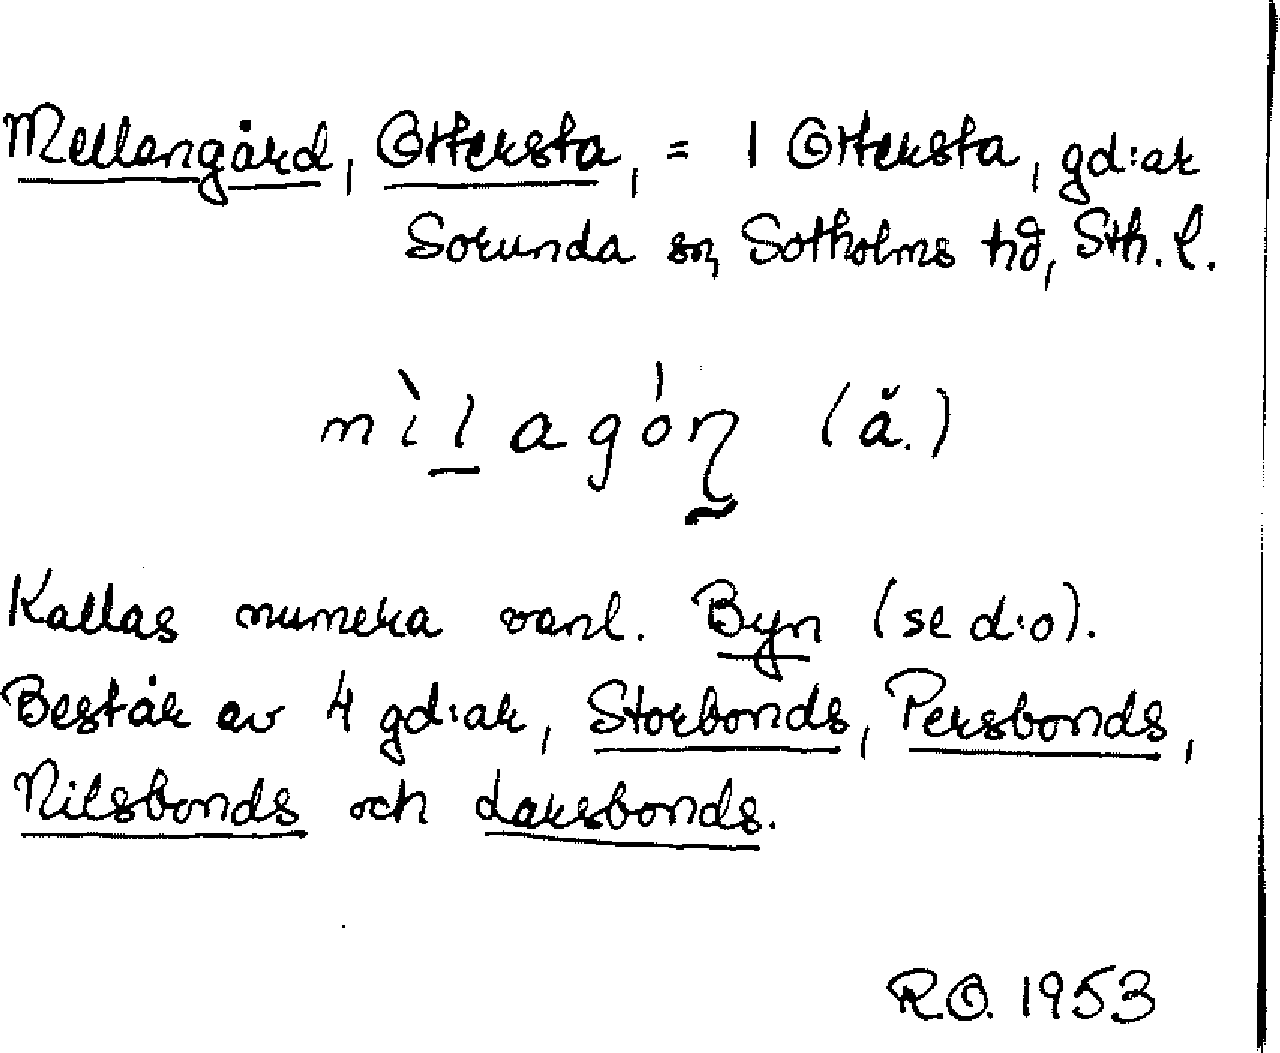 Mellangård, Ottersta, = 1 Ottersta, gd:ar
Sorunda sn, Sotholms hd, Sth. l.
mìlagón (ă.)
Kallas numera vanl. Byn (se d:o).
Består av 4 gd:ar, Storbonds, Persbonds,
Nilsbonds och Larsbonds.
R.O. 1953